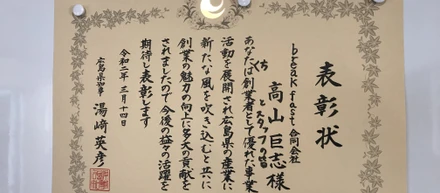 表彰状
breakfast合同会社
高山巨志様
とスタッフの皆
あなたは創業者として優れた事業
活動を展開され広島県の産業に
新たな風を吹き込むと共に
創業の魅力の向上に多大の貢献を
されましたので今後の益々の活躍を
期待し表彰します
令和二年三月十四日
広島県知事 湯﨑英彦